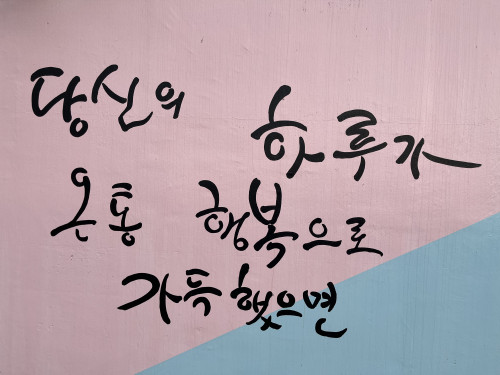 당신의 하루가
온통 행복으로
가득했으면